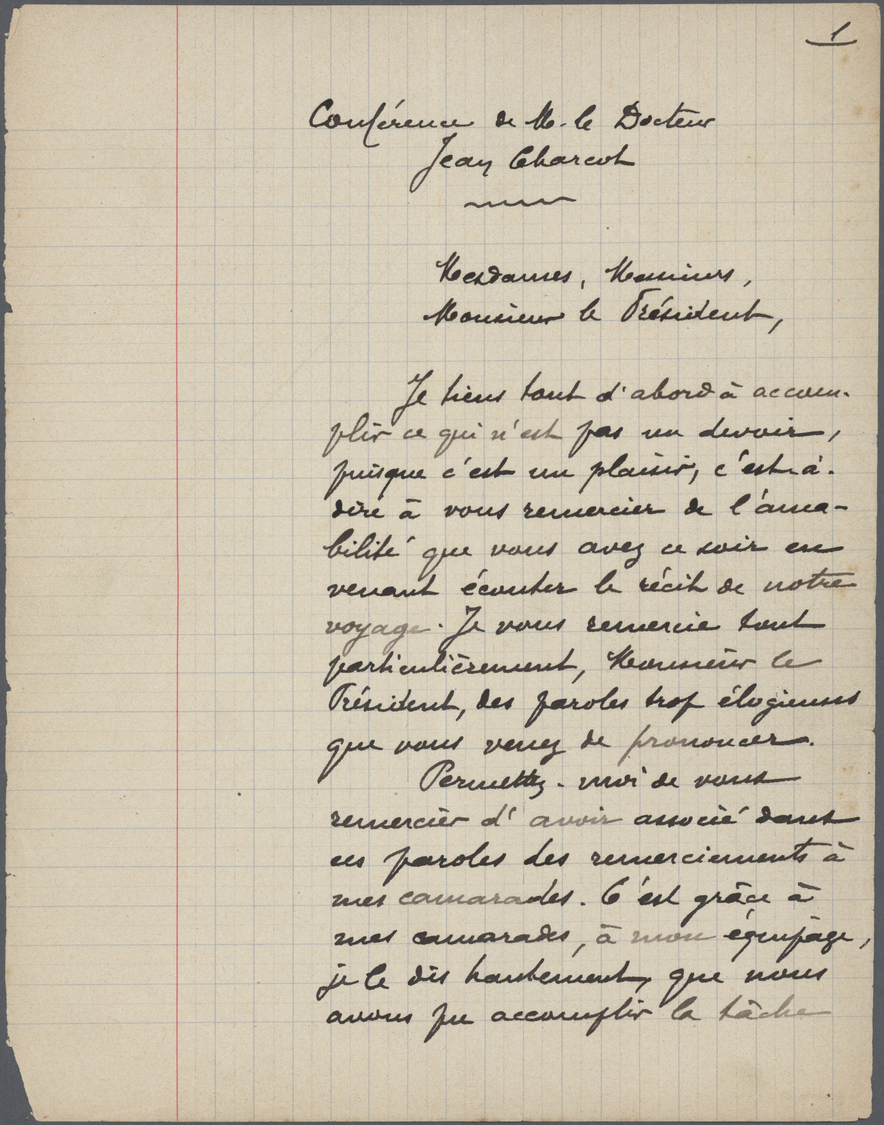 1
Conférence de M. le Docteur
Jean Charcot
Mesdames, Messieurs,
Monsieur le Président,
Je tiens tout d'abord à accom-
plir ce qui n'est pas un devoir,
puisque c'est un plaisir, c'est-à-
dire à vous remercier de l'ama-
bilité que vous avez ce soir en
venant écouter le récit de notre
voyage. Je vous remercie tout
particulièrement, Monsieur le
Président, des paroles trop élogieuses
que vous venez de prononcer.
Permettez-moi de vous
remercier d'avoir associé dans
ces paroles des remerciements à
mes camarades. C'est grâce à
mes camarades, à mon équipage,
je le dis hautement, que nous
avons pu accomplir la tâche